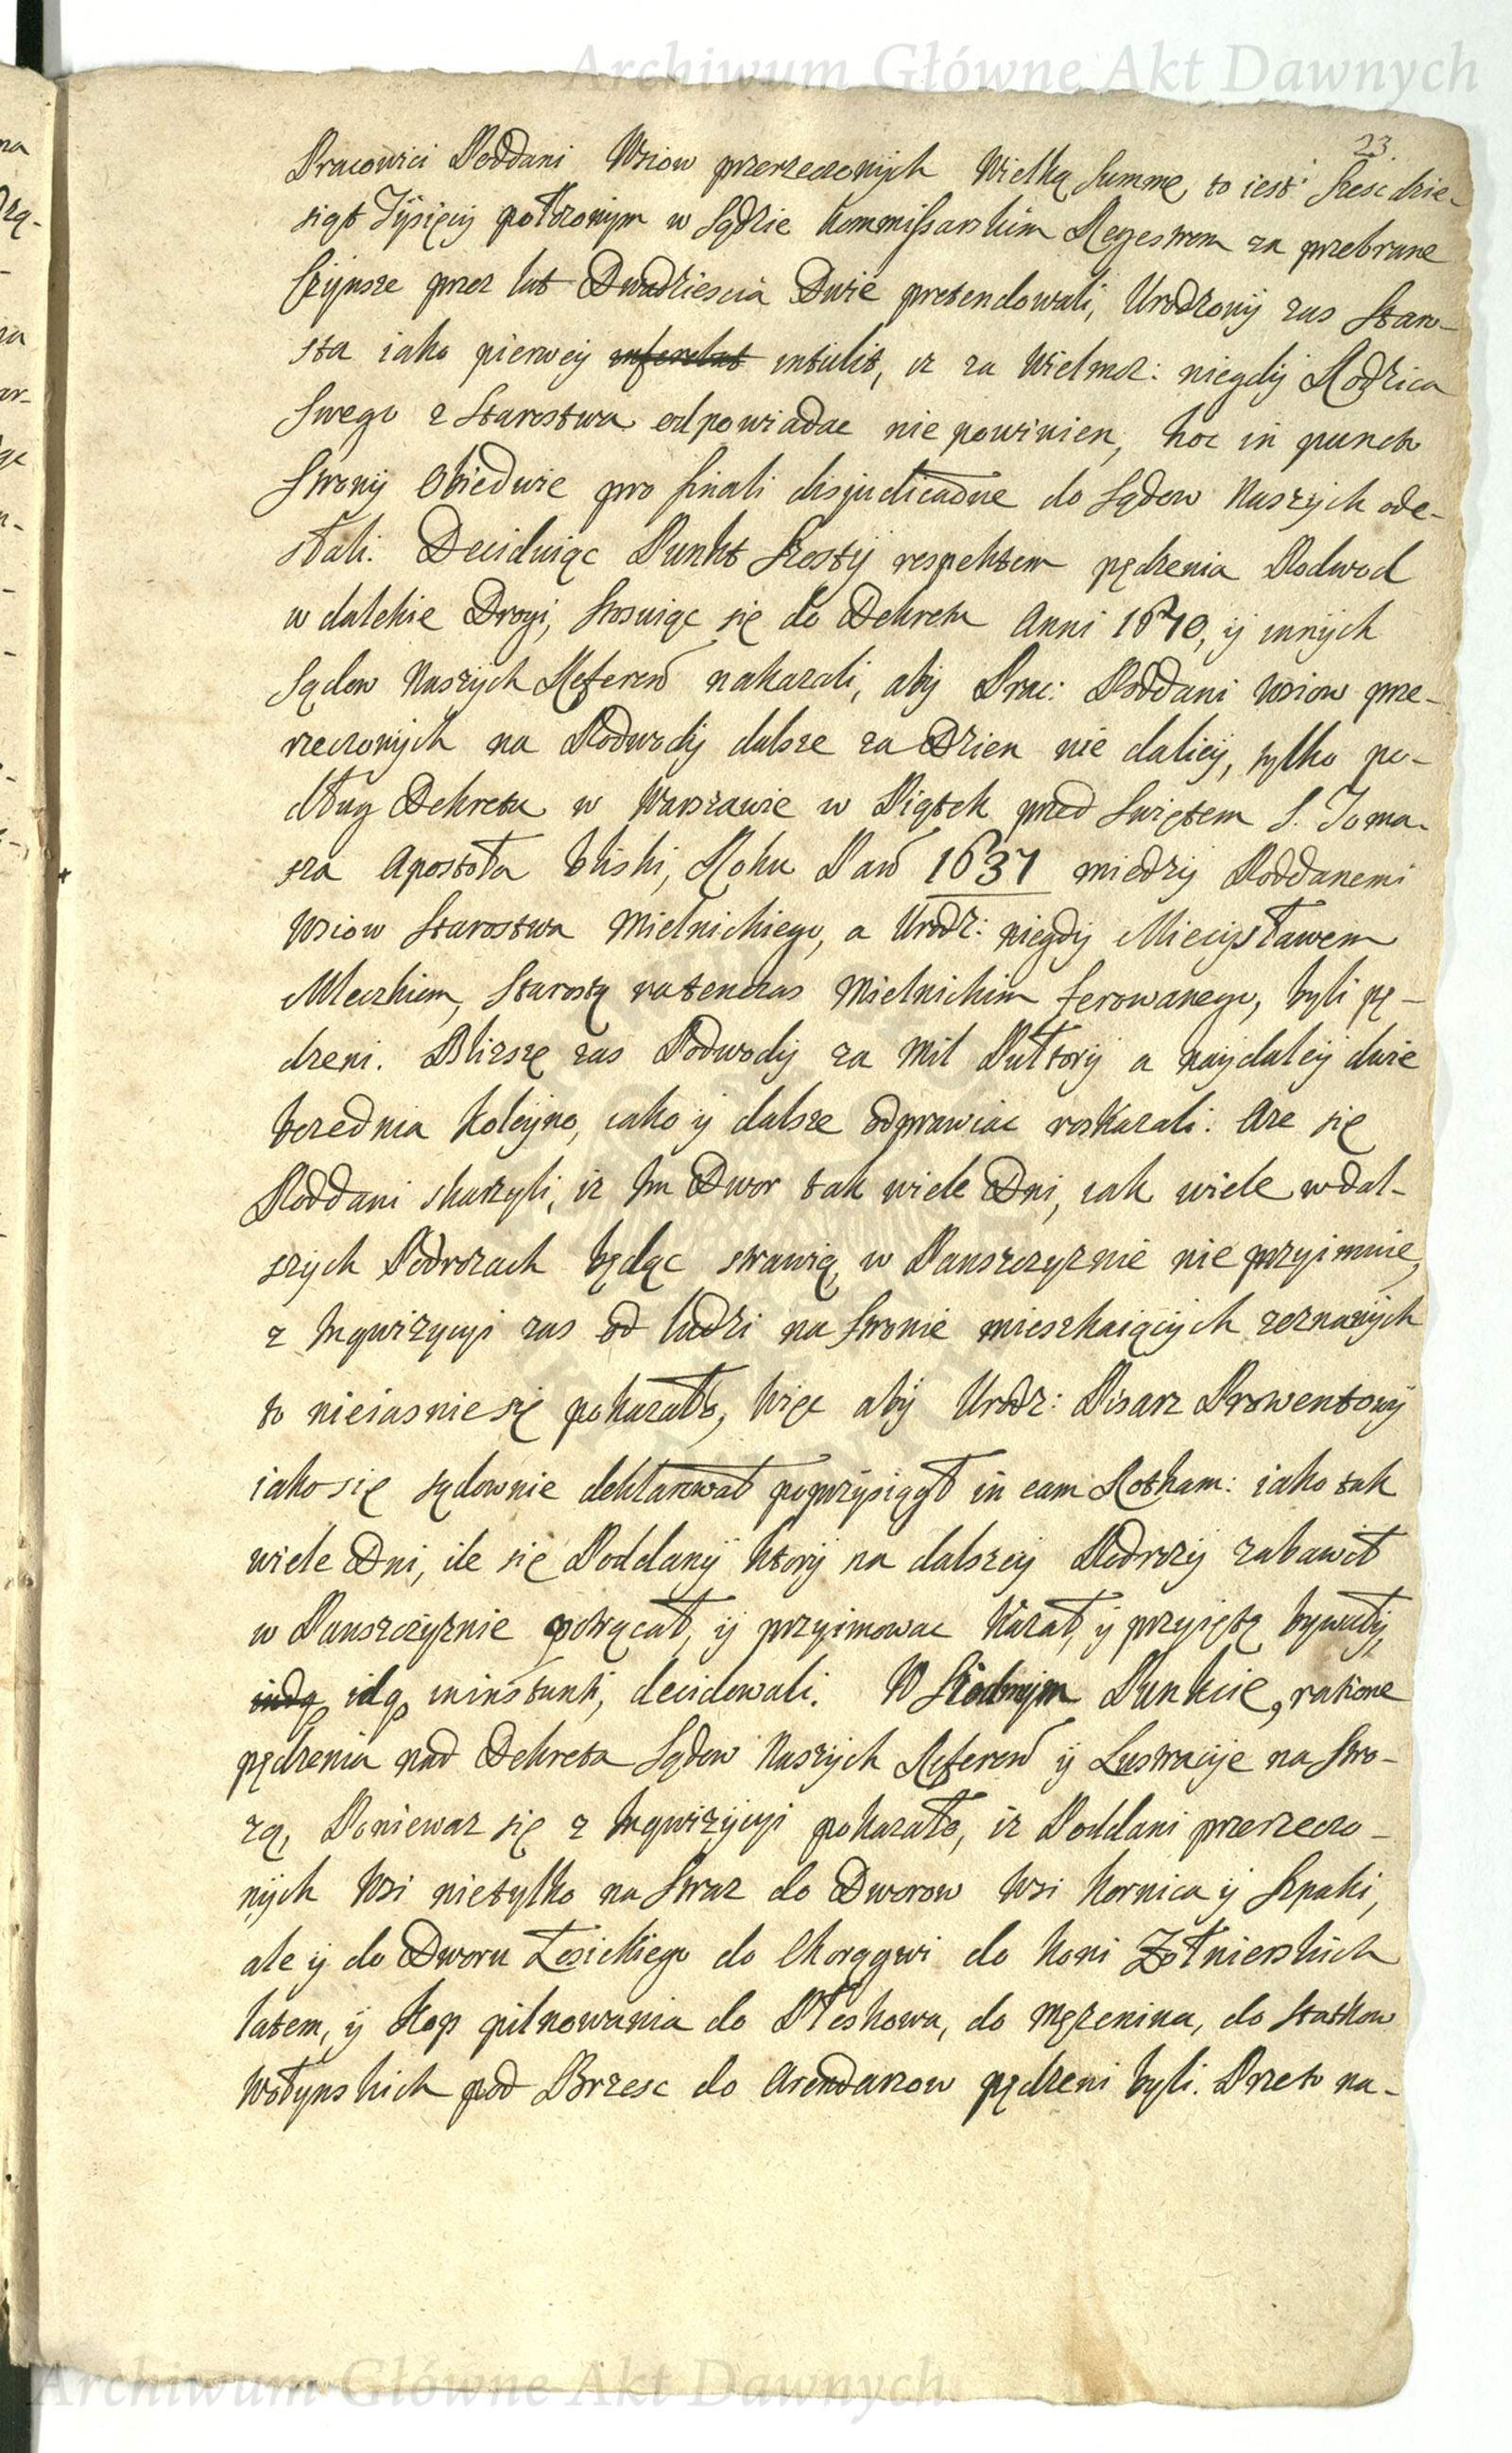 Archiwum Główne Akt Dawnych
23.
Pracowici Poddani Wsiow przerzeczonych Wielką Summę, to iest: Szescdzie-
siąt Tysięcy położonym w Sądzie Kommissarskim Regestrem za przebrane
Czynsze przez lat Dwadziescia Dwie pretendowali, Urodzony zas Staro-
sta iako pierwey intulit, iz za Wielmoz: niegdy Rodzica
Swego z Starostwa odpowiadac nie powinien, hoc in puncto
Strony Obiedwie pro finali disjudicaōne do Sądow Naszych ode-
słali. Deciduiąc Punkt Szosty respektem pędzenia Podwod
w dalekie Drogi, stosuiąc się do Dekretu Anni 1670, y innych
Sądow Naszych Referen̄ nakazali, aby Prac: Poddani Wsiow prze-
rzeczonych na Podwody dalsze za Dzien nie daliey, tylko po-
dług Dekretu w Warszawie w Piątek przed Swiętem S. Toma-
sza Apostoła bliski, Roku Pań 1637 miedzy Poddanemi
Wsiow Starostwa Mielnickiego, a Urodz: niegdy Miecysławem
Mleczkiem, Starostą natenczas Mielnickim ferowanego, byli pę-
dzeni. Blizsze zas Podwody za Mil Pułtory a naydaley dwie
bezednia koleyno, iako y dalsze odprawiac roskazali. Aze się
Poddani skarzyli, iz Im Dwor tak wiele Dni, iak wiele w dal-
szych Podrozach będąc strawią, w Panszczyznie nie przyimuie,
z Inquizycyi zas od ludzi na Stronie mieszkaiących zeznanych
to nieiasnie się pokazało, Więc aby Urodz: Pisarz Prowentowy
iako się sądownie deklarował poprzysiągł in eam Rotham: iako tak
wiele Dni, ile się Poddany ktory na dalszey Podrozy zabawił
w Panszczyznie potrącał, y przyimowac kazał, y przyięte bywały,
idq minstunt, decidowali. W Siodmym Punkcie, ratione
pędzenia nad Dekreta Sądow Naszych Referen̄ y Lustracye na Stro-
zą, Poniewaz się z Inquizycyi pokazało, iz Poddani przerzeczo-
nych Wsi nietylko na Straz do Dworow Wsi Kornica y Szpaki,
ale y do Dworu Łosickiego do Chorągwi do Koni Zołnierskich
latem, y Kop pilnowania do Pleskowa, do Męzenina, do Statkow
Wołynskich pod Brzesc do Arendarzow pędzeni byli. Przeto na-
Archiwum Główne Akt Dawnych